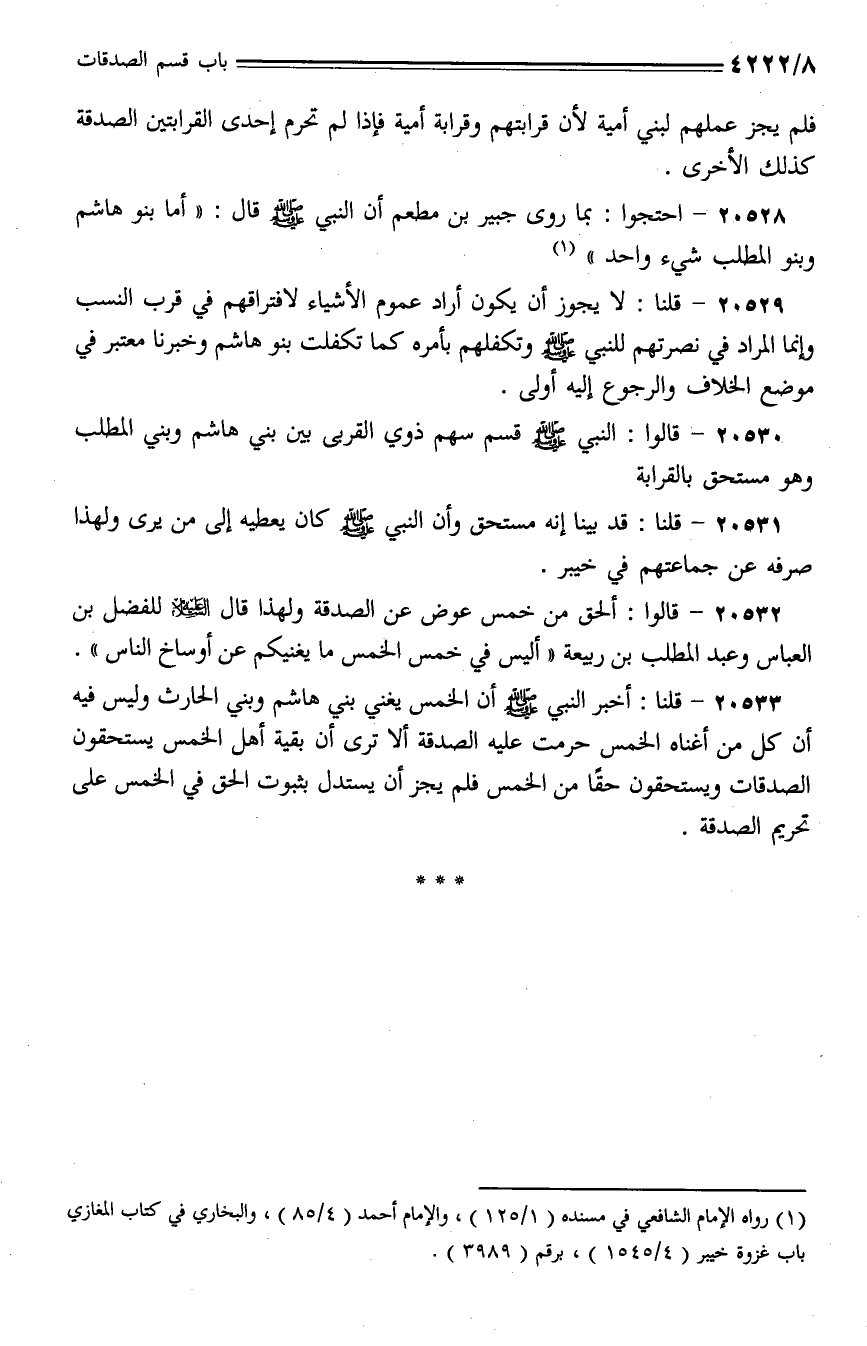 ٤٢٢٢/٨ باب قسم الصدقات
فلم يجز عملهم لبني أمية لأن قرابتهم وقرابة أمية فإذا لم تحرم إحدى القرابتين الصدقة
كذلك الأخرى .
٢٠٥٢٨ - احتجوا : بما روى جبير بن مطعم أن النبي ﷺ قال : « أما بنو هاشم
وبنو المطلب شيء واحد » (١)
٢٠٥٢٩ - قلنا : لا يجوز أن يكون أراد عموم الأشياء لافتراقهم في قرب النسب
وإنما المراد في نصرتهم للنبي ﷺ وتكفلهم بأمره كما تكفلت بنو هاشم وخبرنا معتبر في
موضع الخلاف والرجوع إليه أولى .
٢٠٥٣٠ - قالوا : النبي ﷺ قسم سهم ذوي القربى بين بني هاشم وبني المطلب
وهو مستحق بالقرابة
٢٠٥٣١ - قلنا : قد بينا إنه مستحق وأن النبي ﷺ كان يعطيه إلى من يرى ولهذا
صرفه عن جماعتهم في خيبر .
٢٠٥٣٢ - قالوا : ألحق من خمس عوض عن الصدقة ولهذا قال عليه السلام للفضل بن
العباس وعبد المطلب بن ربيعة « أليس في خمس الخمس ما يغنيكم عن أوساخ الناس » .
٢٠٥٣٣ - قلنا : أخبر النبي ﷺ أن الخمس يغني بني هاشم وبني الحارث وليس فيه
أن كل من أغناه الخمس حرمت عليه الصدقة ألا ترى أن بقية أهل الخمس يستحقون
الصدقات ويستحقون حقًا من الخمس فلم يجز أن يستدل بثبوت الحق في الخمس على
تحريم الصدقة .
* * *
(١) رواه الإمام الشافعي في مسنده ( ١٢٥/١ ) ، والإمام أحمد ( ٨٥/٤ ) ، والبخاري في كتاب المغازي
باب غزوة خيبر ( ١٥٤٥/٤ ) ، برقم ( ٣٩٨٩ ) .